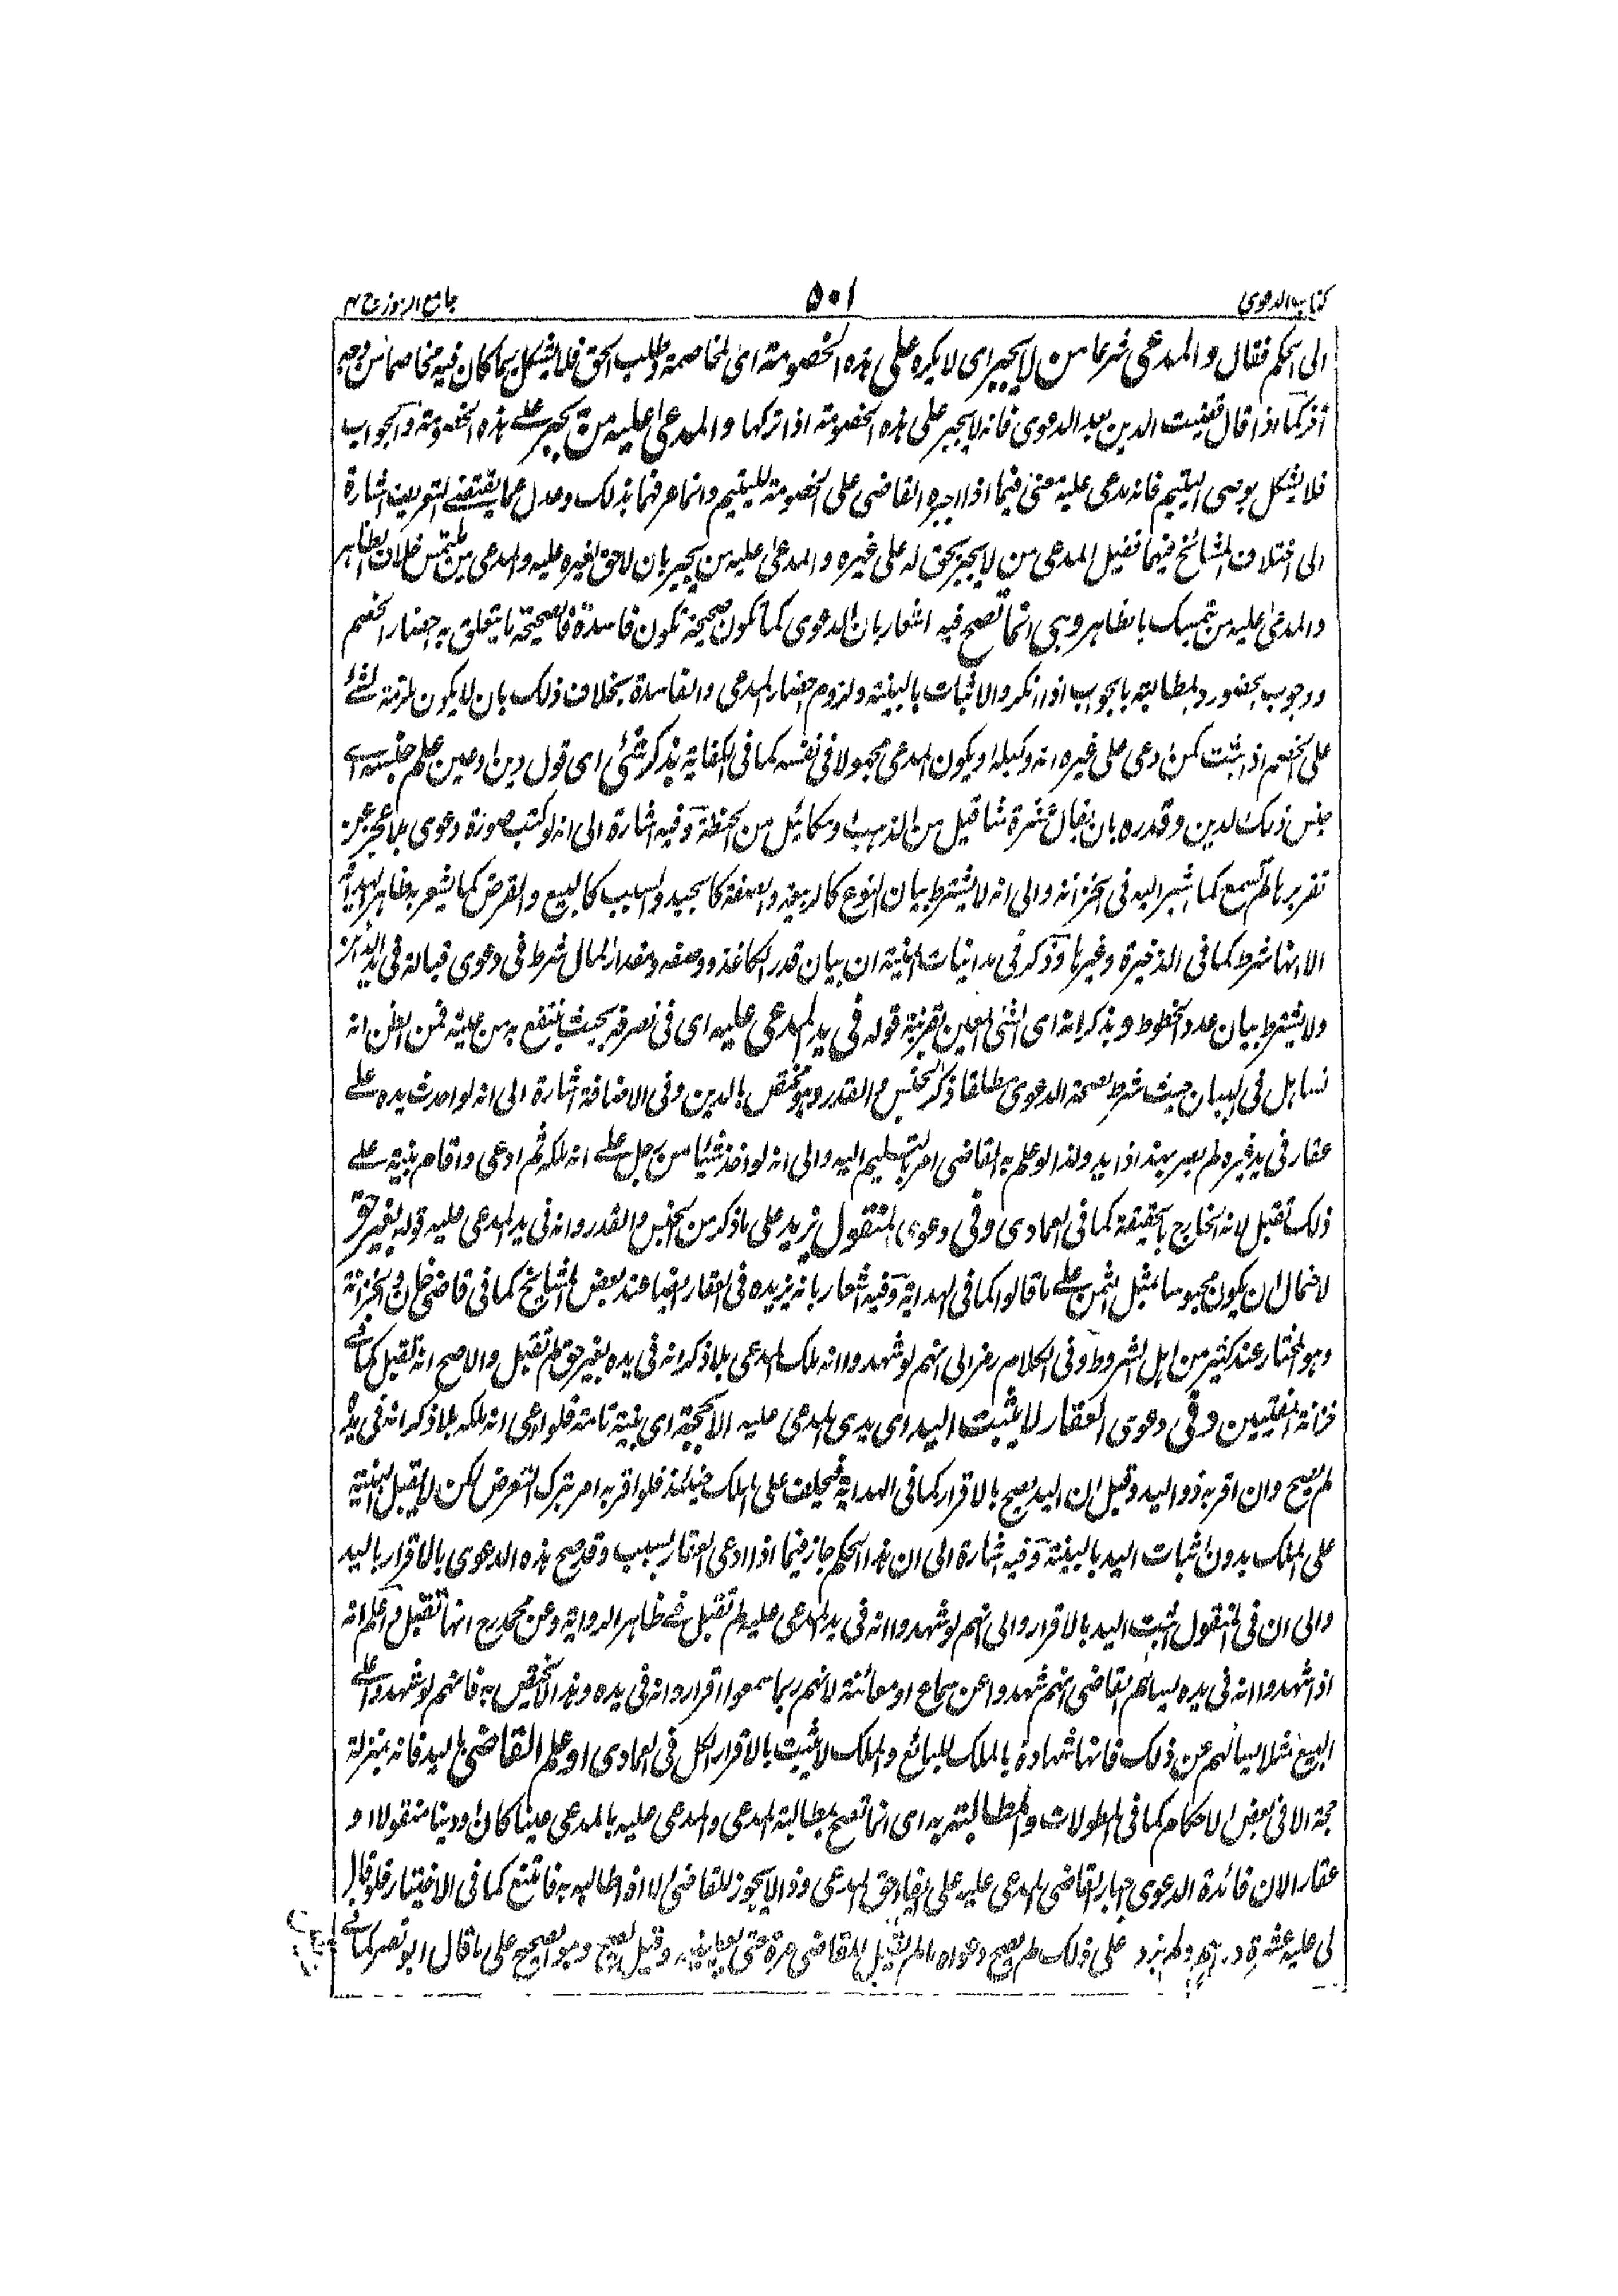 كتاب الدعوى ٥٠١ جامع الرموز ج ٢
الى الحكم فقال والمدعى شرعا من لا يجبر اى لا يكره على هذه الخصومة اى المخاصمة وطلب الحق فلا يشكل بما كان فيه مخاصما من وجه
آخر كما اذا قال قضيت الدين بعد الدعوى فانه لا يجبر على هذه الخصومة اذا تركها والمدعى عليه من يجبر على هذه الخصومة والجواب
فلا يشكل بوصى اليتيم فانه مدعى عليه معنى فيما اذا اجبره القاضى على الخصومة لليتيم وانما عرفهما بذلك وعدل عما يقتضى التعريف اشارة
الى اختلاف المشائخ فيهما فقيل المدعى من لا يجبر بحق له على غيره والمدعى عليه من يجبر بان لا حق لغيره عليه والمدعى من يلتمس خلاف الظاهر
والمدعى عليه من يتمسك بالظاهر وهى انما تصح فيه اشعار بان الدعوى كما تكون صحيحة تكون فاسدة فالصحيحة ما يتعلق به احضار الخصم
ووجوب الحضور والمطالبة بالجواب اذا انكر والاثبات بالبينة ولزوم احضار المدعى والفاسدة بخلاف ذلك بان لا يكون ملزمة لشئ
على الخصم اذا ثبت كمن ادعى على غيره انه وكيله او يكون المدعى مجهولا فى نفسه كما فى الكفاية بذكر شئ اى قول دين او عين علم جنسه اى
جنس ذلك الدين وقدره بان يقال عشرة مثاقيل من الذهب او مكائيل من الحنطة وفيه اشارة الى انه لو كتب صورة دعوى بلا عجز عن
تقريرها لم تسمع كما اشير اليه فى الخزانة والى انه لا يشترط بيان النوع كالربيعة والصفة كالجيد والسبب كالبيع والقرض كما يشعر به ظاهر الهداية
الا انها شرط كما فى الذخيرة وغيرها وذكر فى مداينات المنية ان بيان قدر الكاغذ ووصفه ومقدار المال شرط فى دعوى قبالة فى يد
ولا يشترط بيان عدد الخطوط وبذكر انه اى الشئ المعين بقرينة قوله فى يد المدعى عليه اى فى تصرفه بحيث ينتفع به من عينه فمن الظن انه
تساهل فى البيان حيث شرط لصحة الدعوى مطلقا ذكر الجنس والقدر وهو مختص بالدين وفى الاضافة اشارة الى انه لو احدث يده على
عقار فى يد غيره لم يصر بهذا ذا يد ولذا لو علم به القاضى امر بالتسليم اليه والى انه لو اخذ شيئا من رجل على انه ملكه ثم ادعى واقام بينة على
ذلك تقبل لانه الخارج بالحقيقة كما فى العمادى وفى دعوى المنقول يزيد على ما ذكر من الجنس والقدر وانه فى يد المدعى عليه قوله بغير حق
لاحتمال ان يكون محبوسا بمثل الثمن على ما قالوا كما فى الهداية وفيه اشعار بانه يزيده فى العقار ايضا عند بعض المشايخ كما فى قاضى خان والخزانة
وهو المختار عند كثير من اهل الشروط وفى الكلام رمز الى انهم لو شهدوا انه ملك المدعى بلا ذكر انه فى يده بغير حق لم تقبل والاصح انه تقبل كما فى
خزانة المفتيين وفى دعوى العقار لا يثبت اليد اى يد المدعى عليه الا بحجة اى بينة تامة فلو ادعى انه ملكه بلا ذكر انه فى يده
لم تصح وان اقر به ذو اليد وقيل ان اليد يصح بالاقرار كما فى الهداية فيحلف على الملك حينئذ فلو اقر به امر بترك التعرض لكن لا تقبل البينة
على الملك بدون اثبات اليد بالبينة وفيه اشارة الى ان هذا الحكم جاز فيما اذا ادعى العقار بسبب وقد صح هذه الدعوى بالاقرار باليد
والى ان فى المنقول يثبت اليد بالاقرار والى انهم لو شهدوا انه فى يد المدعى عليه لم تقبل فى ظاهر الرواية وعن محمد رح انها تقبل واعلم انه
اذا شهدوا انه فى يده يسألهم القاضى انهم شهدوا عن سماع او معائنة لانهم ربما سمعوا اقراره انه فى يده وهذا لا يختص به فانهم لو شهدوا على
البيع مثلا يسألهم عن ذلك فانها شهادة بالملك للبائع والملك لا يثبت بالاقرار الكل فى العمادى او علم القاضى باليد فانه بمنزلة
حجة الا فى بعض الاحكام كما فى المطولات والمطالبة به اى انما تصح بمطالبة المدعى والمدعى عليه بالمدعى عينا كان او دينا منقولا او
عقارا لان فائدة الدعوى اجبار القاضى المدعى عليه على ايفاء حق المدعى وذا لا يجوز للقاضى الا اذا طالبه به فامتنع كما فى الاختيار فلو قال
لى عليه عشرة دراهم ولم يزد على ذلك لم يصح دعواه ما لم يقل للقاضى مره حتى يعطينيه وقيل تصح وهو الصحيح على ما قال ابو نصر كما فى